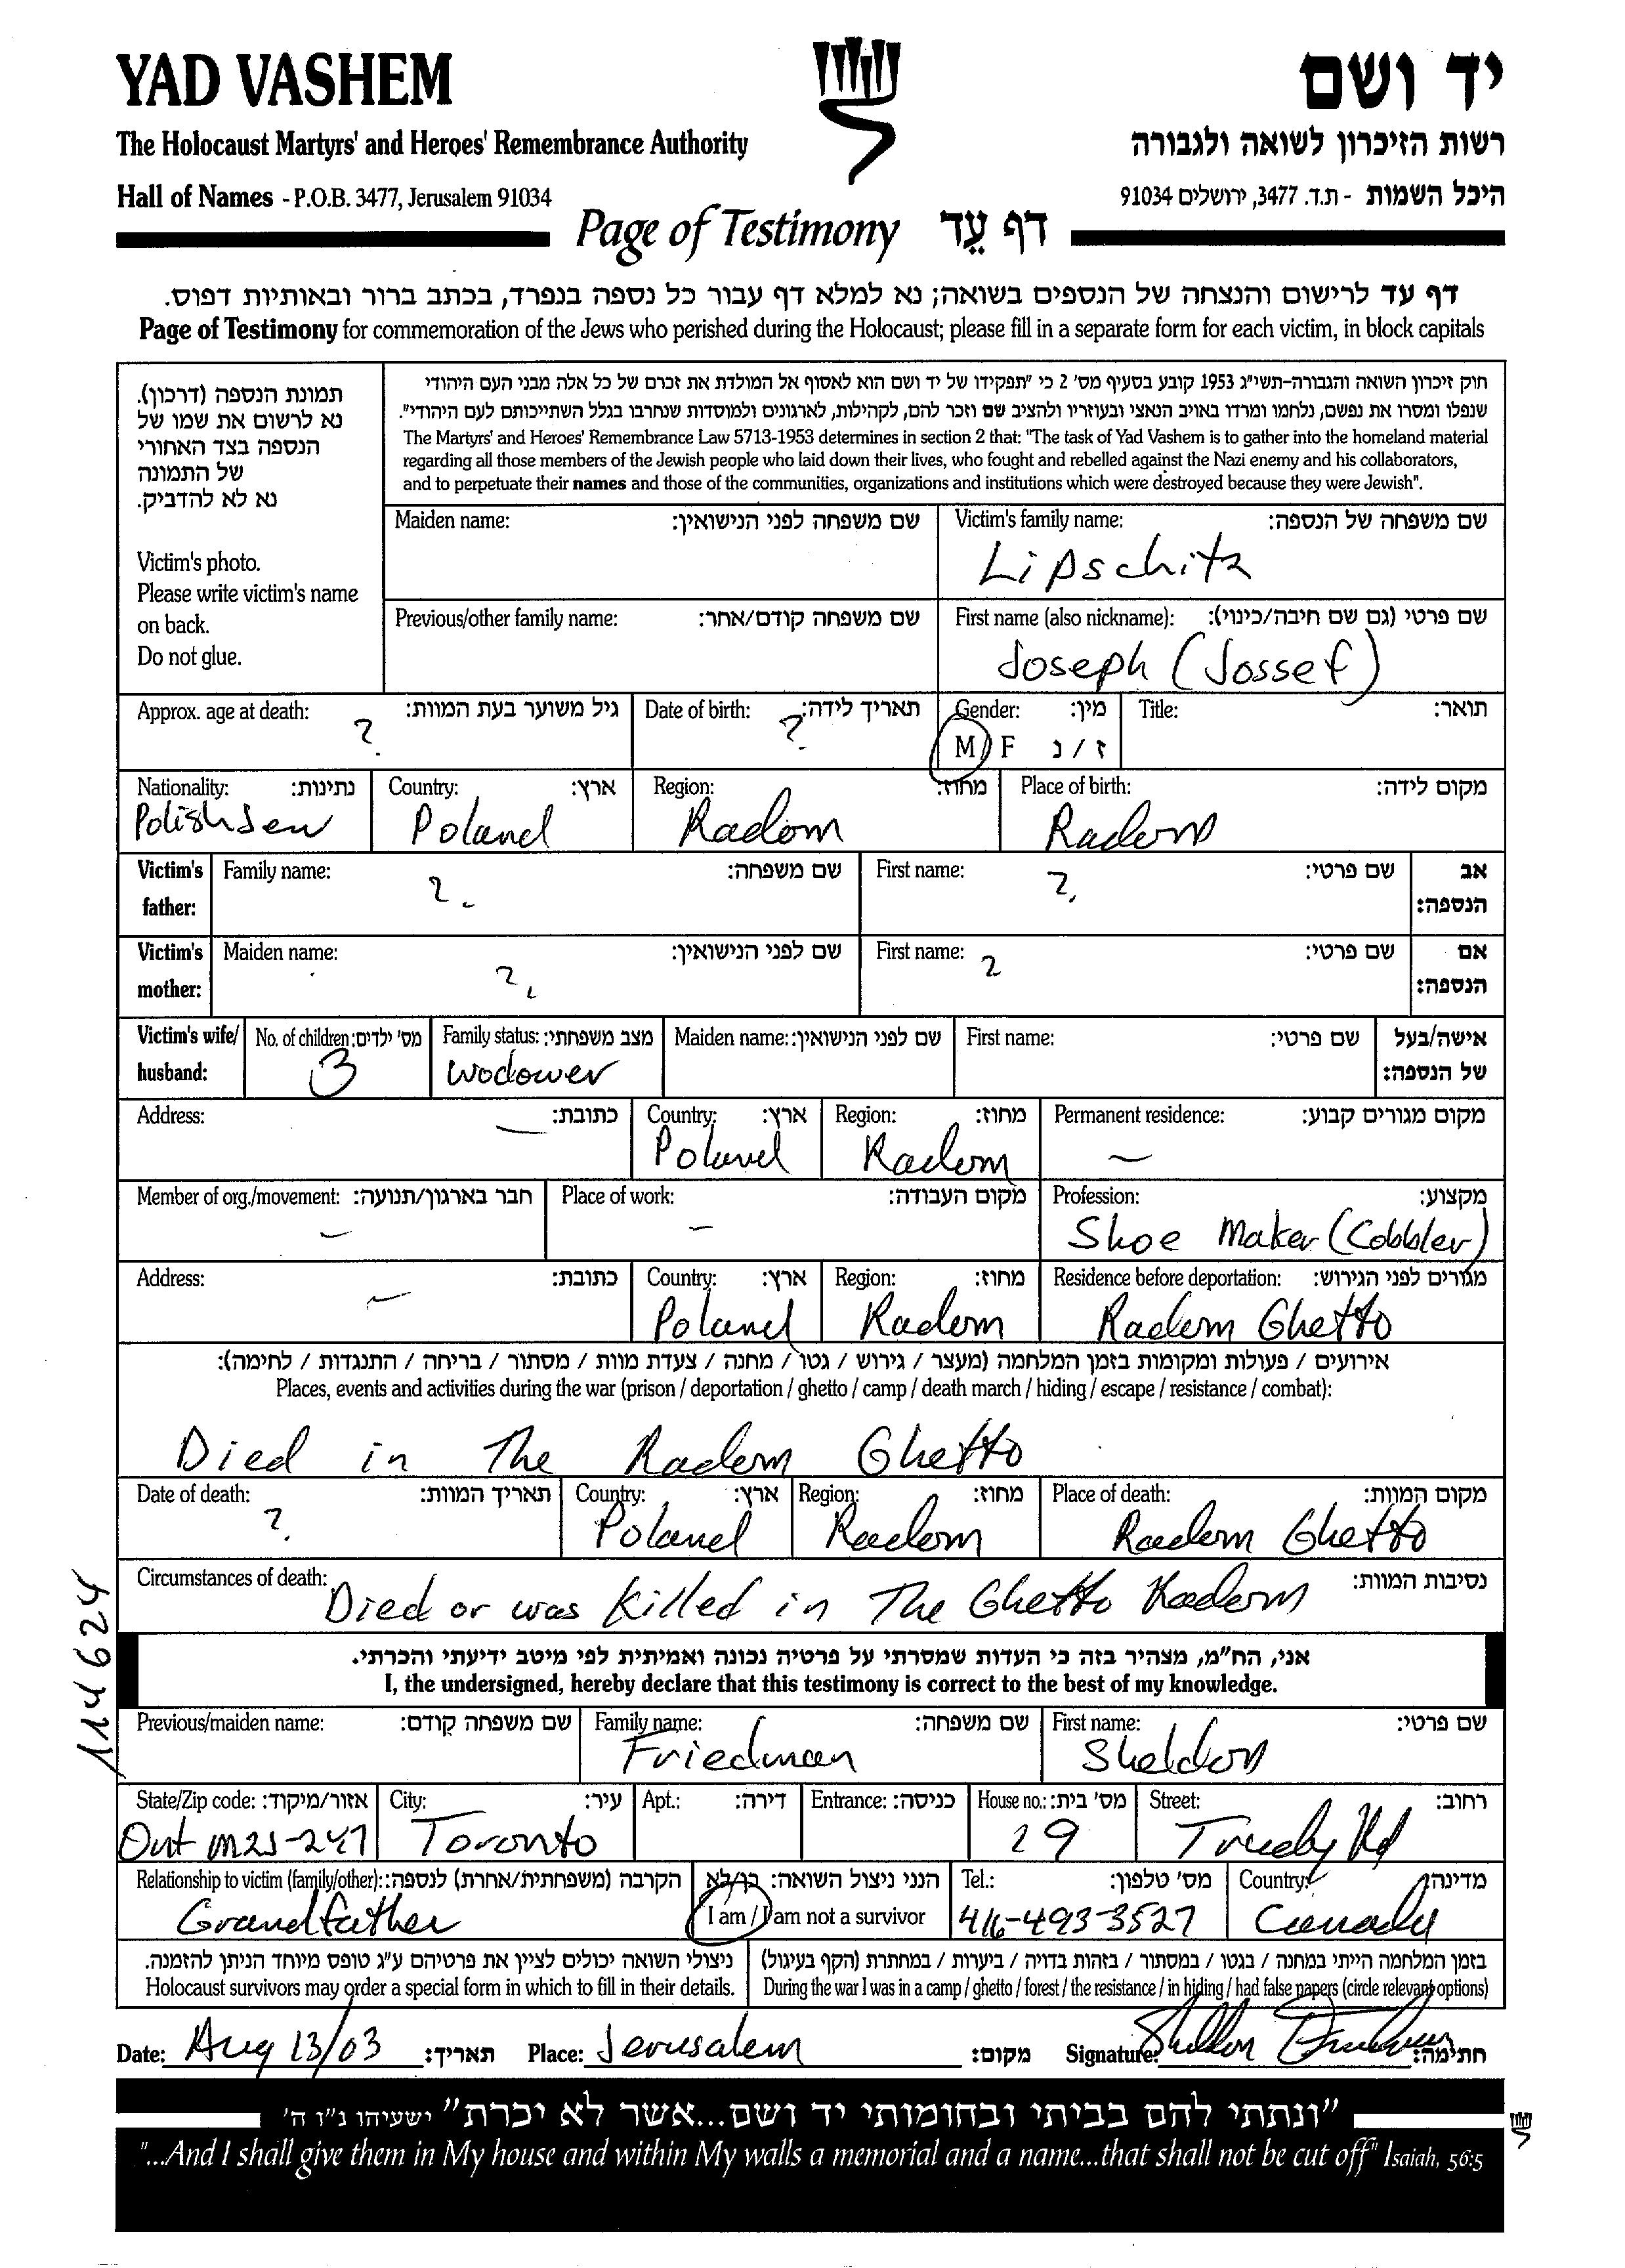 YAD VASHEM
יד ושם
The Holocaust Martyrs' and Heroes' Remembrance Authority
רשות הזיכרון לשואה ולגבורה
Hall of Names - P.O.B. 3477, Jerusalem 91034
היכל השמות - ת.ד. 3477, ירושלים 91034
Page of Testimony דף עֵד
דף עד לרישום והנצחה של הנספים בשואה; נא למלא דף עבור כל נספה בנפרד, בכתב ברור ובאותיות דפוס.
Page of Testimony for commemoration of the Jews who perished during the Holocaust; please fill in a separate form for each victim, in block capitals
תמונת הנספה (דרכון).
נא לרשום את שמו של
הנספה בצד האחורי
של התמונה
נא לא להדביק.
Victim's photo.
Please write victim's name
on back.
Do not glue.
חוק זיכרון השואה והגבורה-תשי"ג 1953 קובע בסעיף מס' 2 כי "תפקידו של יד ושם הוא לאסוף אל המולדת את זכרם של כל אלה מבני העם היהודי
שנפלו ומסרו את נפשם, נלחמו ומרדו באויב הנאצי ובעוזריו ולהציב שם וזכר להם, לקהילות, לארגונים ולמוסדות שנחרבו בגלל השתייכותם לעם היהודי".
The Martyrs' and Heroes' Remembrance Law 5713-1953 determines in section 2 that: "The task of Yad Vashem is to gather into the homeland material
regarding all those members of the Jewish people who laid down their lives, who fought and rebelled against the Nazi enemy and his collaborators,
and to perpetuate their names and those of the communities, organizations and institutions which were destroyed because they were Jewish".
Maiden name: שם משפחה לפני הנישואין: Victim's family name: שם משפחה של הנספה:
Lipschitz
Previous/other family name: שם משפחה קודם/אחר: First name (also nickname): שם פרטי (גם שם חיבה/כינוי):
Joseph (Jossef)
Approx. age at death: גיל משוער בעת המוות: Date of birth: תאריך לידה: Gender: מין: Title: תואר:
? ? M / F ז / נ
Nationality: נתינות: Country: ארץ: Region: מחוז: Place of birth: מקום לידה:
Polish Jew Poland Radom Radom
Victim's father: Family name: שם משפחה: First name: שם פרטי: אב הנספה:
? ?
Victim's mother: Maiden name: שם לפני הנישואין: First name: שם פרטי: אם הנספה:
? ?
Victim's wife/ husband: No. of children: מס' ילדים: Family status: מצב משפחתי: Maiden name: שם לפני הנישואין: First name: שם פרטי: אישה/בעל של הנספה:
3 Wodower
Address: כתובת: Country: ארץ: Region: מחוז: Permanent residence: מקום מגורים קבוע:
– Poland Radom –
Member of org./movement: חבר בארגון/תנועה: Place of work: מקום העבודה: Profession: מקצוע:
– – Shoe Maker (Cobbler)
Address: כתובת: Country: ארץ: Region: מחוז: Residence before deportation: מגורים לפני הגירוש:
– Poland Radom Radom Ghetto
אירועים / פעולות ומקומות בזמן המלחמה (מעצר / גירוש / גטו / מחנה / צעדת מוות / מסתור / בריחה / התנגדות / לחימה):
Places, events and activities during the war (prison / deportation / ghetto / camp / death march / hiding / escape / resistance / combat):
Died in The Radom Ghetto
Date of death: תאריך המוות: Country: ארץ: Region: מחוז: Place of death: מקום המוות:
? Poland Radom Radom Ghetto
Circumstances of death: נסיבות המוות:
Died or was killed in The Ghetto Radom
114624
אני, הח"מ, מצהיר בזה כי העדות שמסרתי על פרטיה נכונה ואמיתית לפי מיטב ידיעתי והכרתי.
I, the undersigned, hereby declare that this testimony is correct to the best of my knowledge.
Previous/maiden name: שם משפחה קודם: Family name: שם משפחה: First name: שם פרטי:
Friedman Sheldon
State/Zip code: אזור/מיקוד: City: עיר: Apt.: דירה: Entrance: כניסה: House no.: מס' בית: Street: רחוב:
Ont Toronto 29 Rd
Relationship to victim (family/other): הקרבה (משפחתית/אחרת) לנספה: הנני ניצול השואה: כן/לא Tel.: מס' טלפון: Country: מדינה:
Grandfather I am / I am not a survivor 416-493-3527 Canada
ניצולי השואה יכולים לציין את פרטיהם ע"ג טופס מיוחד הניתן להזמנה. בזמן המלחמה הייתי במחנה / בגטו / במסתור / בזהות בדויה / ביערות / במחתרת (הקף בעיגול)
Holocaust survivors may order a special form in which to fill in their details. During the war I was in a camp / ghetto / forest / the resistance / in hiding / had false papers (circle relevant options)
Date: Aug 13/03 תאריך: Place: Jerusalem מקום: Signature: Sheldon Friedman חתימה:
"ונתתי להם בביתי ובחומותי יד ושם...אשר לא יכרת" ישעיהו נ"ו ה'
"...And I shall give them in My house and within My walls a memorial and a name...that shall not be cut off" Isaiah, 56:5